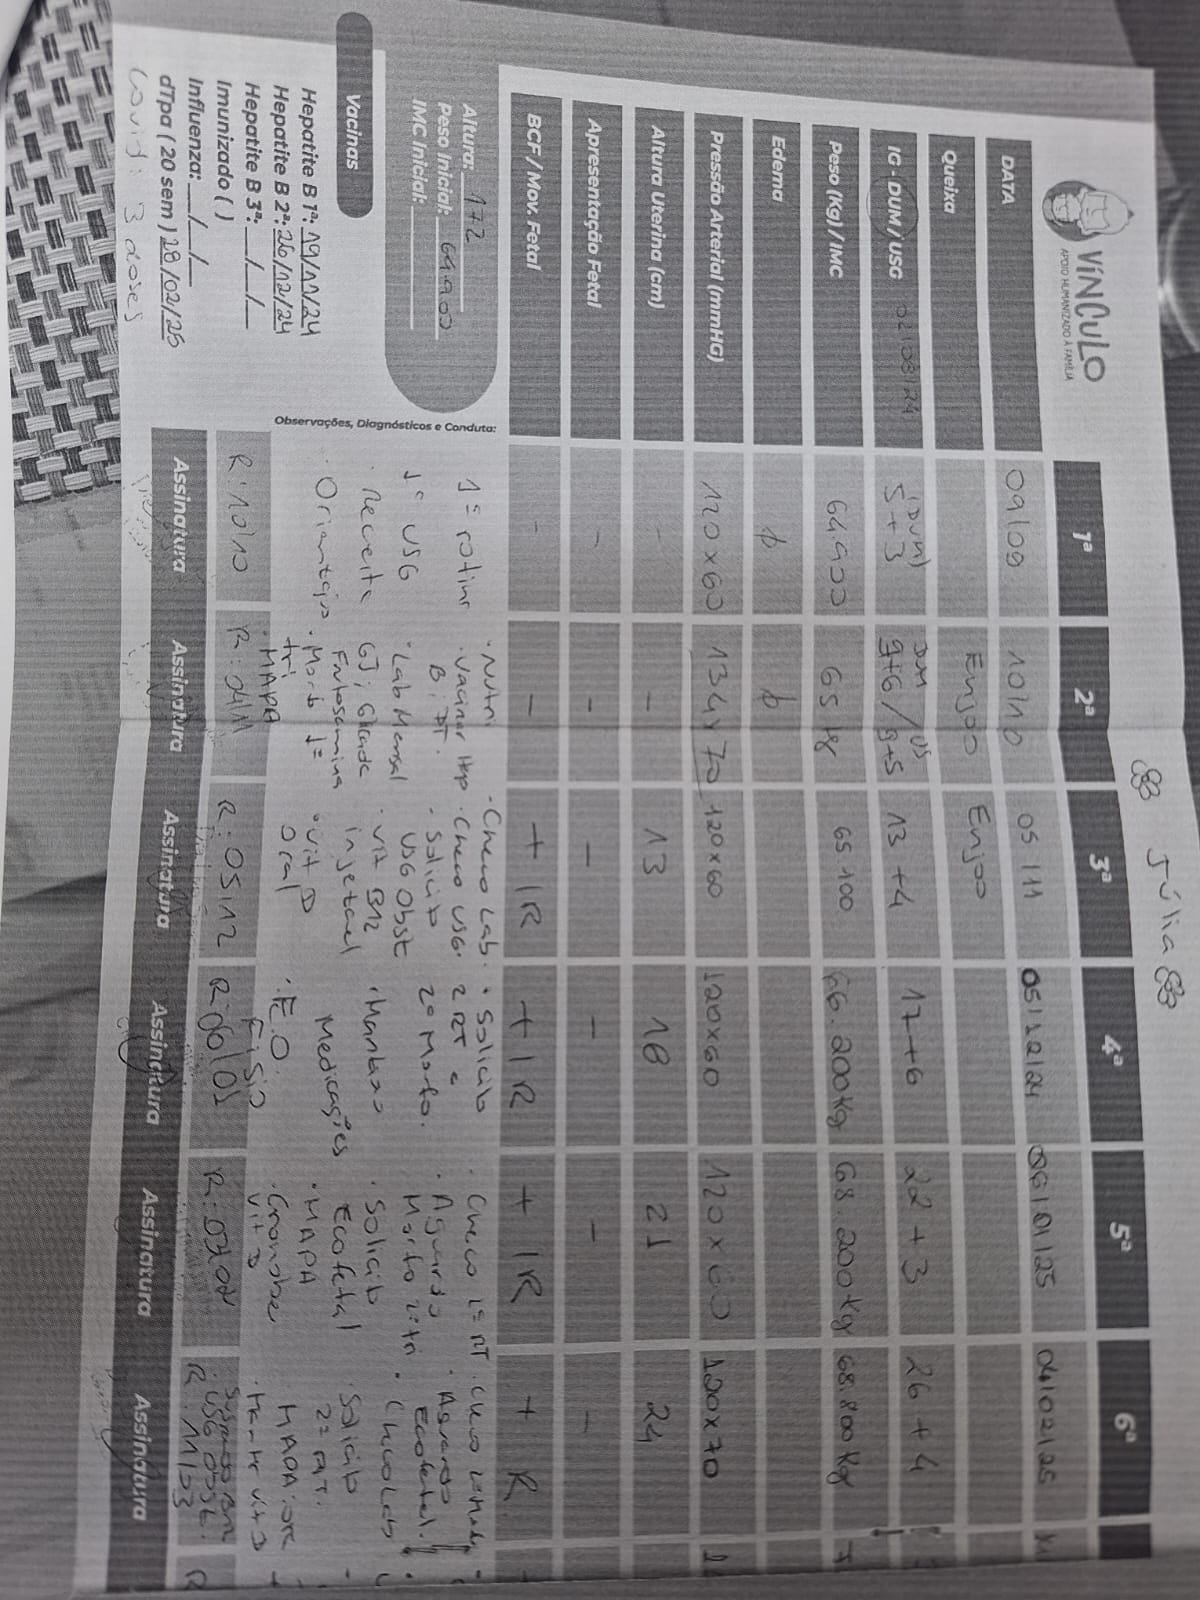 Júlia
VíNCULO
APOIO HUMANIZADO À FAMÍLIA
1ª 2ª 3ª 4ª 5ª 6ª
DATA 09/09 10/10 05/11 05/12/24 06/01/25 04/02/25
Queixa Enjoo Enjoo
IG - DUM / USG 02/08/24 (DUM) 5+3 DUM 9+6 / US 9+5 13+4 17+6 22+3 26+4
Peso (Kg) / IMC 64.900 65 kg 65.100 66.200kg 68.200kg 68.800kg
Edema ∅ ∅
Pressão Arterial (mmHG) 120x60 134x70 120x60 120x60 120x60 120x70
Altura Uterina (cm) - - 13 18 21 24
Apresentação Fetal - - - - - -
BCF / Mov. Fetal - - + IR + IR + IR + R
Altura: 172
Peso Inicial: 64.900
IMC Inicial:
Vacinas
Hepatite B 1ª: 19/11/24
Hepatite B 2ª: 26/12/24
Hepatite B 3ª: __/__/__
Imunizado ( )
Influenza: __/__/__
dTpa (20 sem) 28/02/25
Covid: 3 doses
Observações, Diagnósticos e Conduta:
1ª rotina
1º USG
Receita
Orientação
R: 10/10
· Nutri
· Vacinar Hep
B; DT.
· Lab Mensal
GJ; Glicada
Frutosamina
· Morfo 1º
tri
· MAPA
R: 04/11
· Checo Lab.
· Checo USG.
· Solicito
USG Obst
· Vit B12
injetavel
· Vit D
oral
R: 05/12
· Solicito
2 RT e
2º Morfo.
· Mantenho
Medicações
· E.O.
Fisio
R: 06/01
· Checo 1ª RT
· Aguardo
Morfo 2º tri
· Solicito
Ecofetal
· MAPA
· Cronobe
Vit D
R: 03/02
· Checo
· Aguardo
Ecofetal.
· Checo Lab
· Solicito
2ª RT.
MAPA: OK
· Manter vit D
· USG Obst.
R: 11/03
Assinatura Assinatura Assinatura Assinatura Assinatura Assinatura